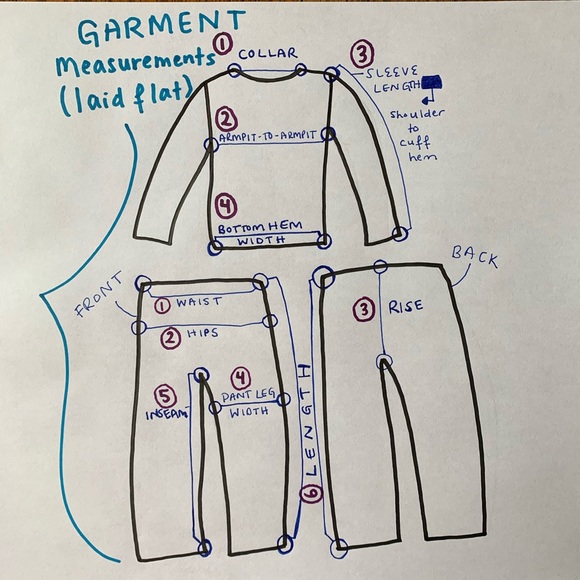 GARMENT
Measurements
(laid flat)
① COLLAR
③
SLEEVE
LENGTH
shoulder
to
cuff
hem
②
ARMPIT-TO-ARMPIT
④
BOTTOM HEM
WIDTH
FRONT
① WAIST
② HIPS
⑤
INSEAM
④
PANT LEG
WIDTH
⑥ LENGTH
BACK
③ RISE